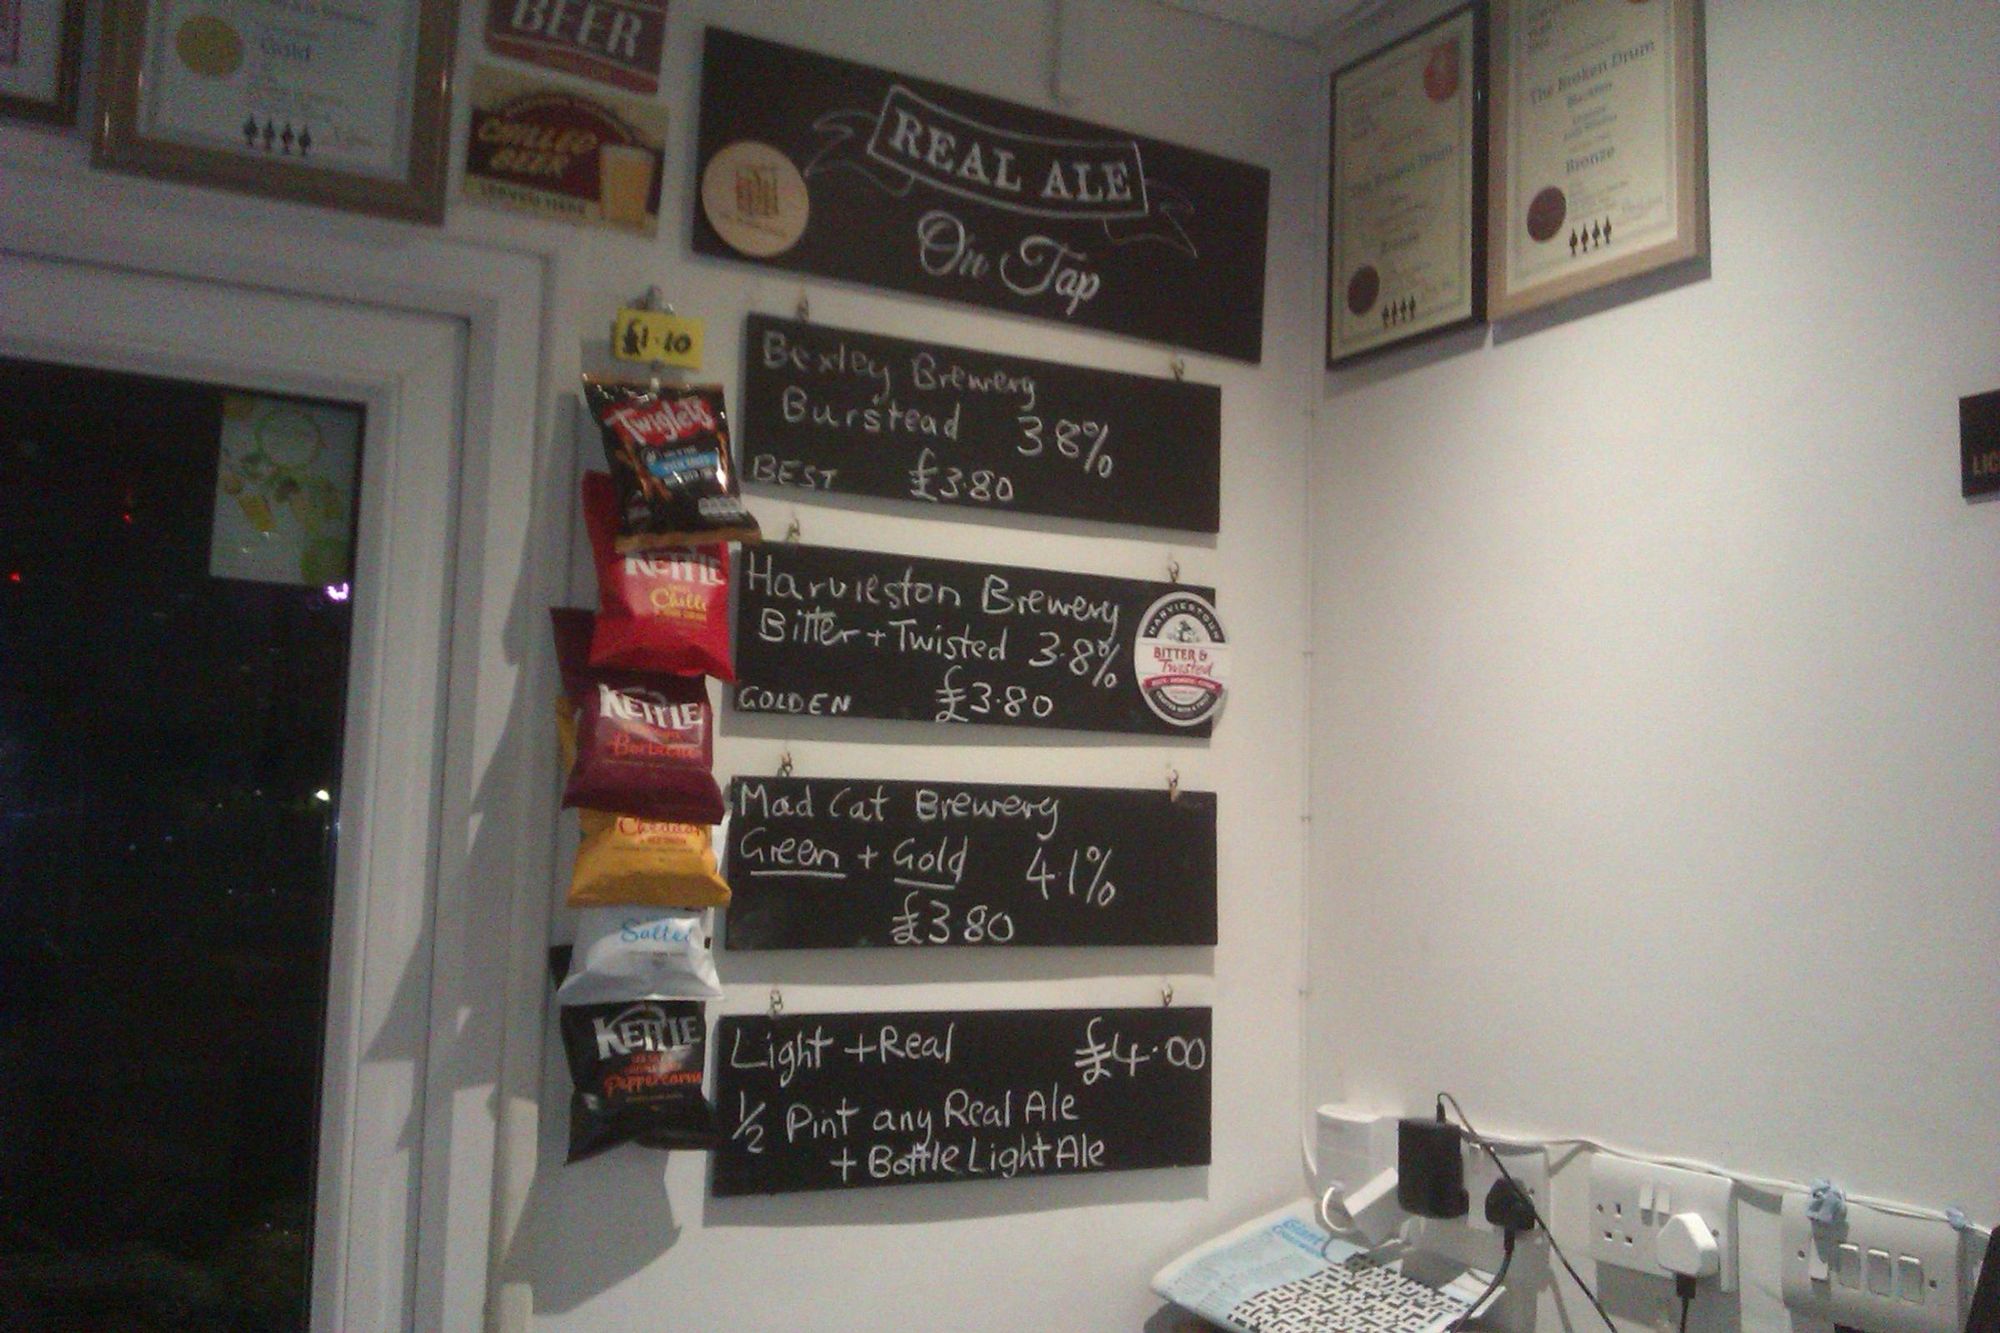 Gold
BEER
CHILLED
BEER
SERVED HERE
REAL ALE
On Tap
£1.10
Twiglets
KETTLE
Chilli
KETTLE
Barbecue
Cheddar
Salted
KETTLE
Peppercorns
Bexley Brewery
Burstead 3.8%
BEST £3.80
Harvieston Brewery
Bitter + Twisted 3.8%
GOLDEN £3.80
HARVIESTOUN
BITTER &
Twisted
Mad Cat Brewery
Green + Gold 4.1%
£3.80
Light + Real £4.00
1/2 Pint any Real Ale
+ Bottle Light Ale
The Broken Drum
The Broken Drum
Bronze
LIC
Giant